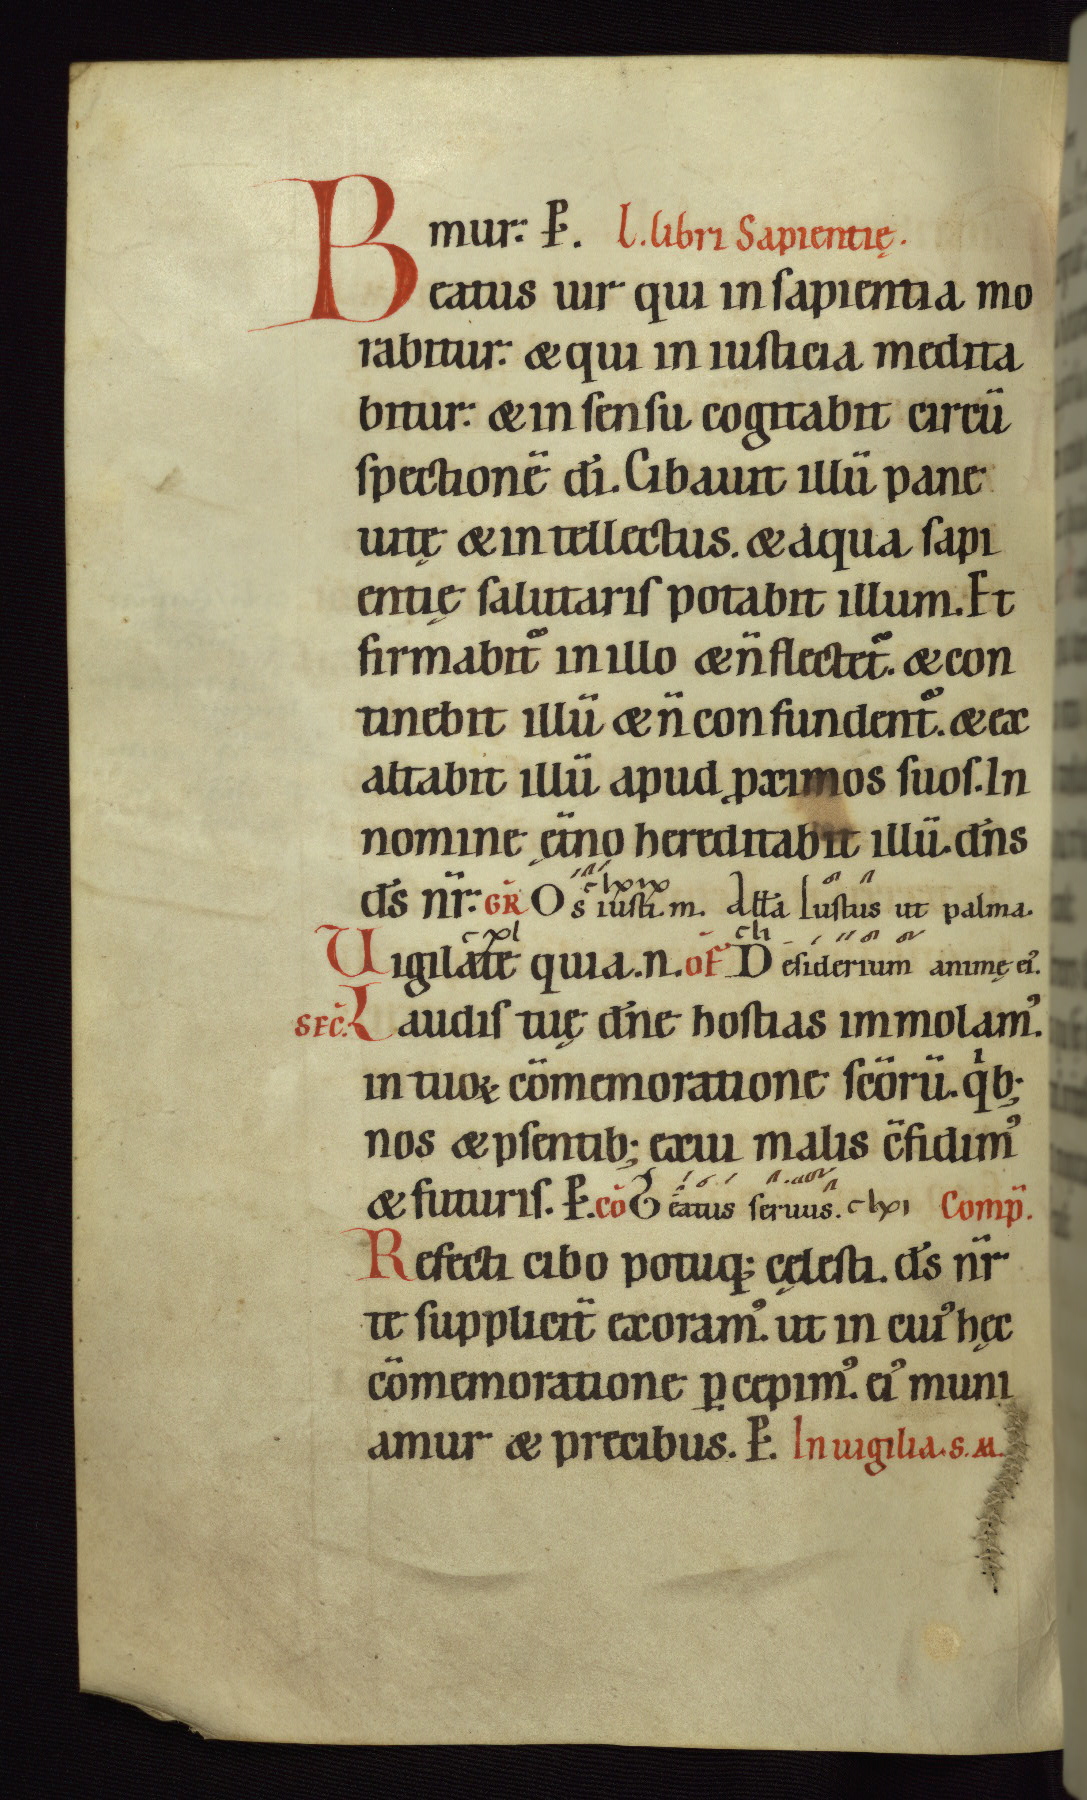 mur: P. L. libri Sapientię.
Beatus uir qui in sapientia mo
rabitur: & qui in iusticia medita
bitur: & in sensu cogitabit circū
spectionē di. Cibauit illū pane
uitę & intellectus. & aqua sapi
entię salutaris potabit illum. Et
firmabit᷑ in illo & n̄ flectet᷑. & con
tinebit illū & n̄ confundent᷑. & ex
altabit illū apud ꝓximos suos. In
nomine ęt̄no hereditabit illū. dn̄s
ds̄ nr̄: GR̄ Os iusti. m. Alla Iustus ut palma.
clxix
Uigilate quia. n. of̄ Desiderium animę ei᷒.
SEC̄. Laudis tuę dn̄e hostias immolam᷒.
in tuoꝝ cōmemoratione scōrū. qͥb;
nos & p̄sentib; exui malis c̄fidim᷒
& futuris. P. cō Beatus seruus. clxi Comp̄.
Refecti cibo potuq; cęlesti. ds̄ nr̄
te supplicit̄ exoram᷒. ut in cui᷒ hęc
cōmemoratione ꝑcepim᷒. ei᷒ muni
amur & precibus. P. In uigilia. s. M.